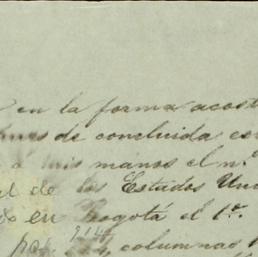 en la forma acost
de concluida es
a mis manos el n.º
al de los Estados Uni
do en Bogotá el 1º.
por columnas